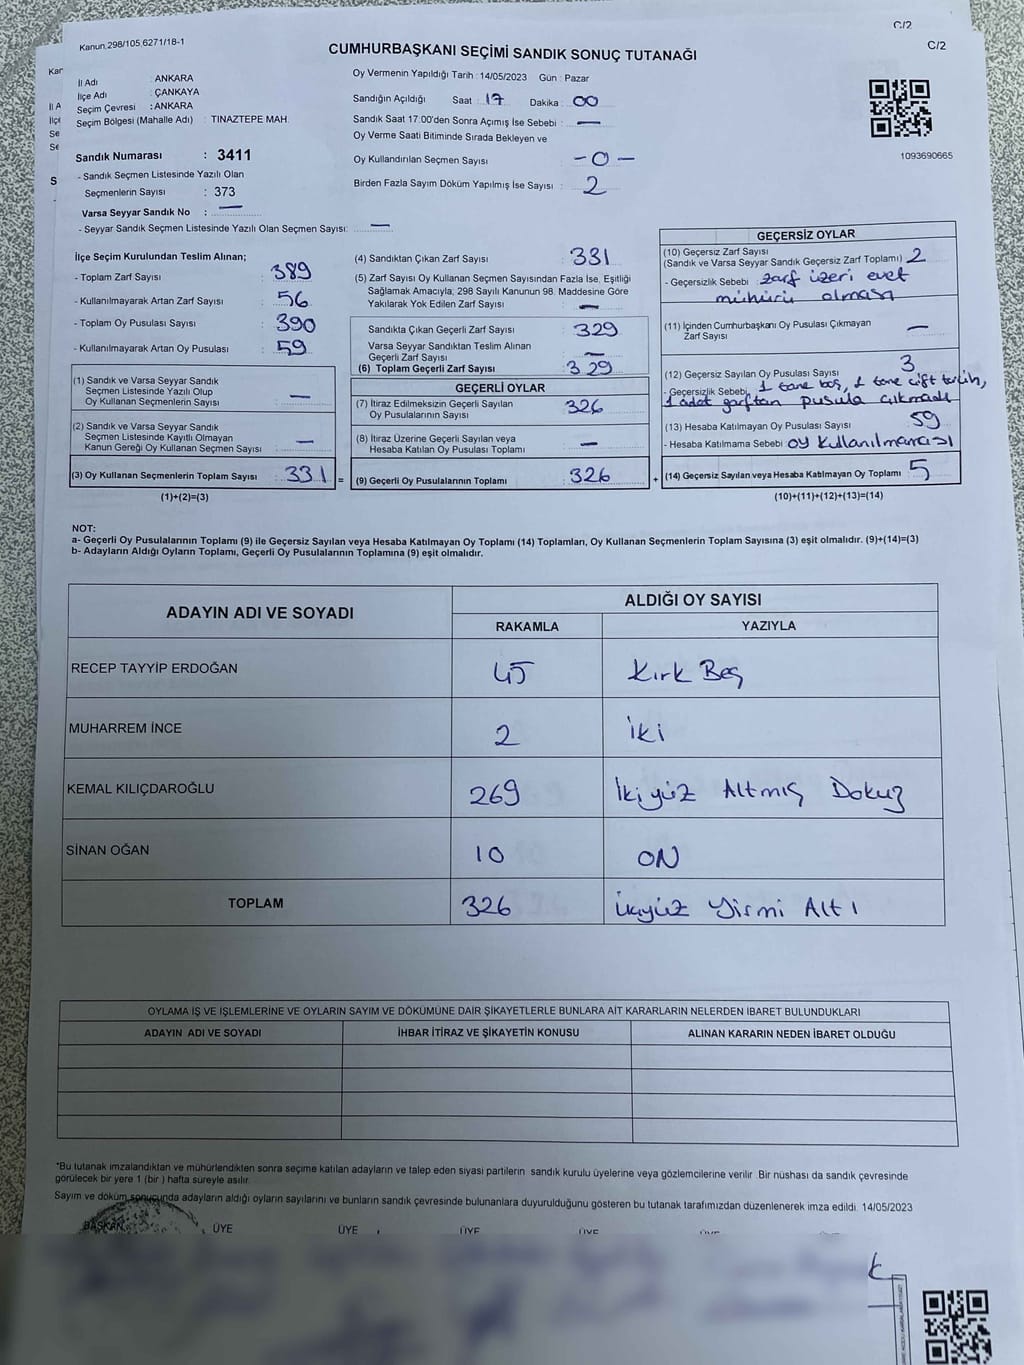 C/2
Kanun.298/105,6271/18-1
C/2
CUMHURBAŞKANI SEÇİMİ SANDIK SONUÇ TUTANAĞI
İl Adı : ANKARA
İlçe Adı : ÇANKAYA
Seçim Çevresi : ANKARA
Seçim Bölgesi (Mahalle Adı) : TINAZTEPE MAH.
Sandık Numarası : 3411
- Sandık Seçmen Listesinde Yazılı Olan
Seçmenlerin Sayısı : 373
Varsa Seyyar Sandık No : —
- Seyyar Sandık Seçmen Listesinde Yazılı Olan Seçmen Sayısı: —
Oy Vermenin Yapıldığı Tarih : 14/05/2023 Gün : Pazar
Sandığın Açıldığı Saat : 17 Dakika : 00
Sandık Saat 17:00'den Sonra Açımış İse Sebebi : —
Oy Verme Saati Bitiminde Sırada Bekleyen ve
Oy Kullandırılan Seçmen Sayısı -0-
Birden Fazla Sayım Döküm Yapılmış İse Sayısı : 2
1093690665
İlçe Seçim Kurulundan Teslim Alınan;
- Toplam Zarf Sayısı : 389
- Kullanılmayarak Artan Zarf Sayısı : 56
- Toplam Oy Pusulası Sayısı : 390
- Kullanılmayarak Artan Oy Pusulası : 59
(1) Sandık ve Varsa Seyyar Sandık
Seçmen Listesinde Yazılı Olup
Oy Kullanan Seçmenlerin Sayısı —
(2) Sandık ve Varsa Seyyar Sandık
Seçmen Listesinde Kayıtlı Olmayan
Kanun Gereği Oy Kullanan Seçmen Sayısı —
(3) Oy Kullanan Seçmenlerin Toplam Sayısı 331 =
(1)+(2)=(3)
(4) Sandıktan Çıkan Zarf Sayısı : 331
(5) Zarf Sayısı Oy Kullanan Seçmen Sayısından Fazla İse, Eşitliği
Sağlamak Amacıyla, 298 Sayılı Kanunun 98. Maddesine Göre
Yakılarak Yok Edilen Zarf Sayısı : —
Sandıkta Çıkan Geçerli Zarf Sayısı : 329
Varsa Seyyar Sandıktan Teslim Alınan
Geçerli Zarf Sayısı —
(6) Toplam Geçerli Zarf Sayısı : 329
GEÇERLİ OYLAR
(7) İtiraz Edilmeksizin Geçerli Sayılan
Oy Pusulalarının Sayısı 326
(8) İtiraz Üzerine Geçerli Sayılan veya
Hesaba Katılan Oy Pusulası Toplamı —
(9) Geçerli Oy Pusulalarının Toplamı 326 +
GEÇERSİZ OYLAR
(10) Geçersiz Zarf Sayısı
(Sandık ve Varsa Seyyar Sandık Geçersiz Zarf Toplamı) 2
- Geçersizlik Sebebi : zarf üzeri evet
mühürü olması
(11) İçinden Cumhurbaşkanı Oy Pusulası Çıkmayan
Zarf Sayısı —
(12) Geçersiz Sayılan Oy Pusulası Sayısı 3
- Geçersizlik Sebebi 1 tane boş, 1 tane çift tercih,
1 adet zarftan pusula çıkmadı
(13) Hesaba Katılmayan Oy Pusulası Sayısı 59
- Hesaba Katılmama Sebebi oy kullanılmaması
(14) Geçersiz Sayılan veya Hesaba Katılmayan Oy Toplamı 5
(10)+(11)+(12)+(13)=(14)
NOT:
a- Geçerli Oy Pusulalarının Toplamı (9) ile Geçersiz Sayılan veya Hesaba Katılmayan Oy Toplamı (14) Toplamları, Oy Kullanan Seçmenlerin Toplam Sayısına (3) eşit olmalıdır. (9)+(14)=(3)
b- Adayların Aldığı Oyların Toplamı, Geçerli Oy Pusulalarının Toplamına (9) eşit olmalıdır.
ADAYIN ADI VE SOYADI ALDIĞI OY SAYISI
RAKAMLA YAZIYLA
RECEP TAYYİP ERDOĞAN 45 Kırk Beş
MUHARREM İNCE 2 İki
KEMAL KILIÇDAROĞLU 269 İkiyüz Altmış Dokuz
SİNAN OĞAN 10 ON
TOPLAM 326 üçyüz Yirmi Altı
OYLAMA İŞ VE İŞLEMLERİNE VE OYLARIN SAYIM VE DÖKÜMÜNE DAİR ŞİKAYETLERLE BUNLARA AİT KARARLARIN NELERDEN İBARET BULUNDUKLARI
ADAYIN ADI VE SOYADI İHBAR İTİRAZ VE ŞİKAYETİN KONUSU ALINAN KARARIN NEDEN İBARET OLDUĞU
*Bu tutanak imzalandıktan ve mühürlendikten sonra seçime katılan adayların ve talep eden siyasi partilerin sandık kurulu üyelerine veya gözlemcilerine verilir Bir nüshası da sandık çevresinde
görülecek bir yere 1 (bir ) hafta süreyle asılır.
Sayım ve döküm sonucunda adayların aldığı oyların sayılarını ve bunların sandık çevresinde bulunanlara duyurulduğunu gösteren bu tutanak tarafımızdan düzenlenerek imza edildi. 14/05/2023
BAŞKAN ÜYE ÜYE ÜYE ÜYE ÜYE